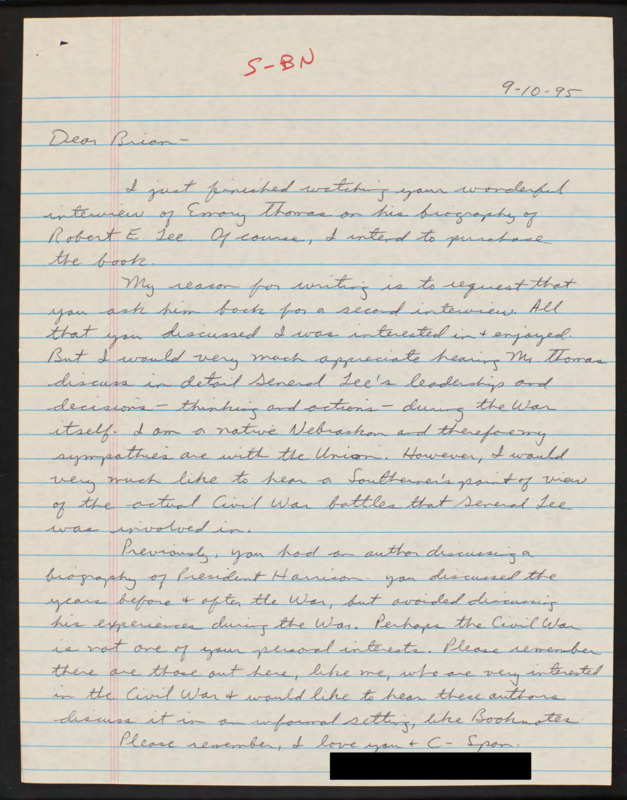 S-BN
9-10-95
Dear Brian-
I just finished watching your wonderful
interview of Emory Thomas on his biography of
Robert E Lee. Of course, I intend to purchase
the book.
My reason for writing is to request that
you ask him back for a second interview. All
that you discussed I was interested in + enjoyed.
But I would very much appreciate hearing Mr. Thomas
discuss in detail General Lee's leadership and
decisions - thinking and actions - during the War
itself. I am a native Nebraskan and therefore my
sympathies are with the Union. However, I would
very much like to hear a Southerner's point of view
of the actual Civil War battles that General Lee
was involved in.
Previously, you had an author discussing a
biography of President Harrison. You discussed the
years before + after the War, but avoided discussing
his experiences during the War. Perhaps the Civil War
is not one of your personal interests. Please remember
there are those out here, like me, who are very interested
in the Civil War + would like to hear these authors
discuss it in an informal setting, like Booknotes.
Please remember, I love you + C-Span.